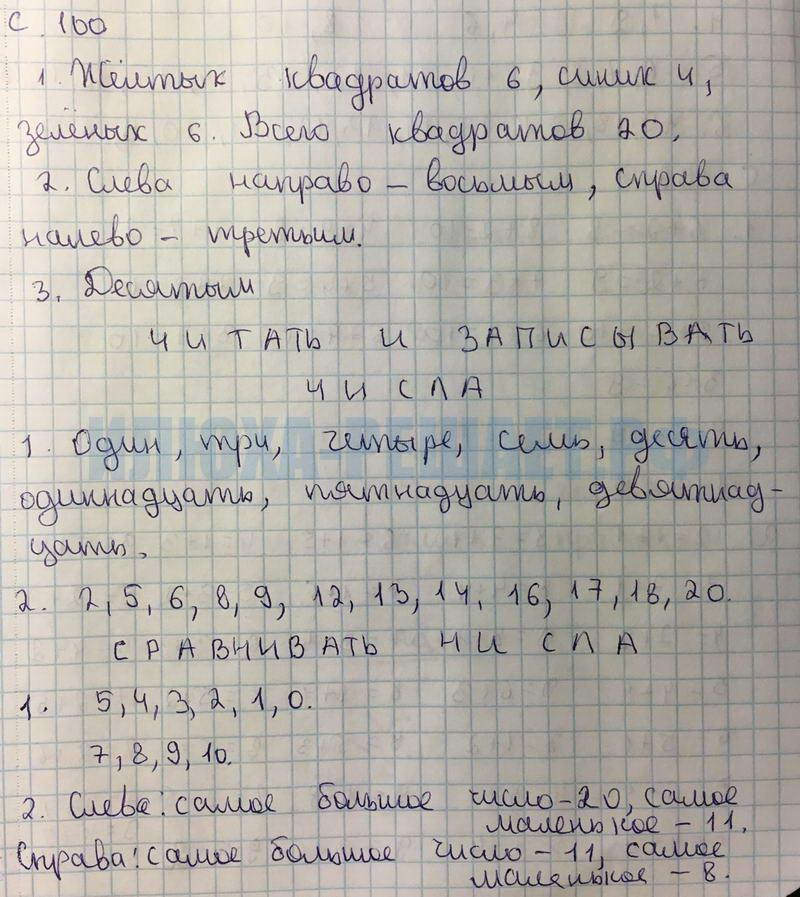 С. 100
1. Жёлтых квадратов 6, синих 4,
зелёных 6. Всего квадратов 20.
2. Слева направо – восьмым, справа
налево – третьим.
3. Десятым
ЧИТАТЬ И ЗАПИСЫВАТЬ
ЧИСЛА
1. Один, три, четыре, семь, десять,
одиннадцать, пятнадцать, девятнад-
цать.
2. 2, 5, 6, 8, 9, 12, 13, 14, 16, 17, 18, 20.
СРАВНИВАТЬ ЧИСЛА
1. 5, 4, 3, 2, 1, 0.
7, 8, 9, 10.
2. Слева: самое большое число – 20, самое
маленькое – 11.
Справа: самое большое число – 11, самое
маленькое – 8.